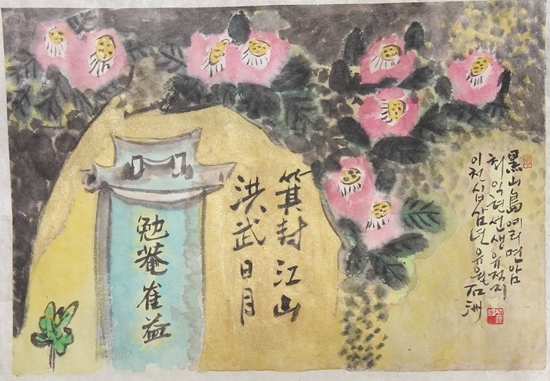 黑山島예리면암
최익현선생유적지
이천십삼년유월石洲
箕封江山
洪武日月
勉菴崔益